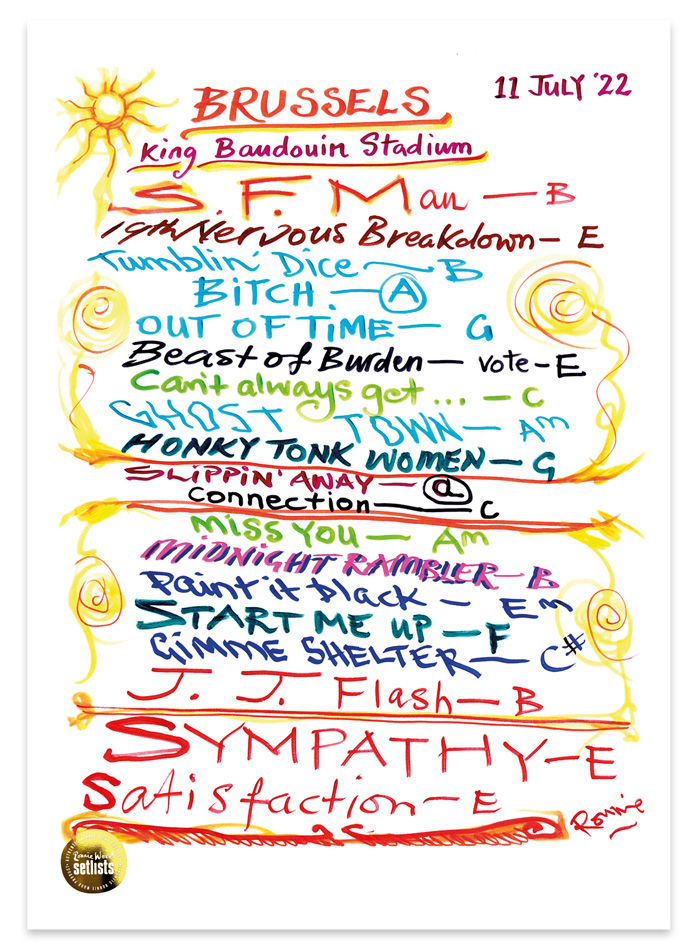 BRUSSELS
11 JULY '22
King Baudouin Stadium
S. F. Man — B
19th Nervous Breakdown — E
Tumblin' Dice — B
BITCH. — A
OUT OF TIME — G
Beast of Burden — vote - E
Can't always get ... — C
GHOST TOWN — Am
HONKY TONK WOMEN — G
SLIPPIN' AWAY — a
Connection — C
MISS YOU — Am
MIDNIGHT RAMBLER — B
Paint it black — Em
START ME UP — F
GIMME SHELTER — C#
J. J. Flash — B
SYMPATHY — E
Satisfaction — E
Ronnie
Ronnie Wood
setlists